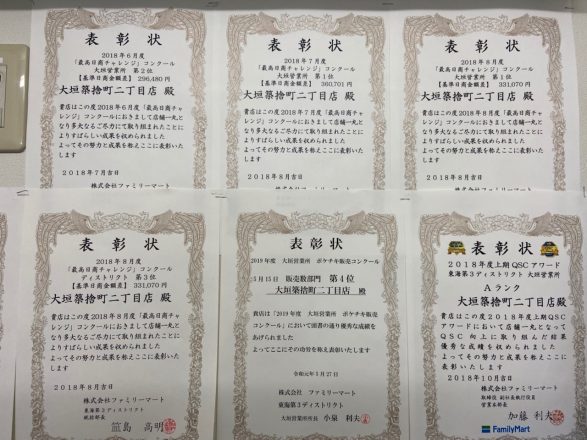 表彰状
2018年6月度
「最高日商チャレンジ」コンクール
大垣営業所 第2位
【基準日商金額差】 296,480円
大垣築捨町二丁目店 殿
貴店はこの度2018年6月度「最高日商チャ
レンジ」コンクールにおきまして店舗一丸と
なり多大なるご尽力にて取り組まれたことに
よりすばらしい成果を収められました
よってその努力と成果を称えここに表彰いた
します
2018年7月吉日
株式会社ファミリーマート
表彰状
2018年7月度
「最高日商チャレンジ」コンクール
大垣営業所 第1位
【基準日商金額差】 360,701円
大垣築捨町二丁目店 殿
貴店はこの度2018年7月度「最高日商チャ
レンジ」コンクールにおきまして店舗一丸と
なり多大なるご尽力にて取り組まれたことに
よりすばらしい成果を収められました
よってその努力と成果を称えここに表彰いた
します
2018年8月吉日
株式会社ファミリーマート
表彰状
2018年8月度
「最高日商チャレンジ」コンクール
大垣営業所 第1位
【基準日商金額差】 331,070円
大垣築捨町二丁目店 殿
貴店はこの度2018年8月度「最高日商チャ
レンジ」コンクールにおきまして店舗一丸と
なり多大なるご尽力にて取り組まれたことに
よりすばらしい成果を収められました
よってその努力と成果を称えここに表彰いた
します
2018年8月吉日
株式会社ファミリーマート
表彰状
2018年8月度
「最高日商チャレンジ」コンクール
ディストリクト 第3位
【基準日商金額差】 331,070円
大垣築捨町二丁目店 殿
貴店はこの度2018年8月度「最高日商チャ
レンジ」コンクールにおきまして店舗一丸と
なり多大なるご尽力にて取り組まれたことに
よりすばらしい成果を収められました
よってその努力と成果を称えここに表彰いた
します
2018年8月吉日
株式会社ファミリーマート
東海第3ディストリクト
高明
表彰状
2019年度 大垣営業所 ポケチキ販売コンクール
5月15日 販売数部門 第4位
大垣築捨町二丁目店 殿
貴店は「2019年度 大垣営業所 ポケチキ販売
コンクール」において頭書の通り優秀な成績を
あげられました
よってここにその功労を称え表彰いたします
令和元年5月27日
株式会社 ファミリーマート
東海第3ディストリクト
大垣営業所所長 小泉 利夫
表彰状
2018年度上期QSCアワード
東海第3ディストリクト 大垣営業所
Aランク
大垣築捨町二丁目店 殿
貴店はこの度2018年度上期QSC
アワードにおいて店舗一丸となって
QSC向上に取り組んだ結果
優秀な成績を収められました
よってその努力と成果を称えここに
表彰いたします
2018年10月吉日
株式会社ファミリーマート
取締役 副社長執行役員
営業本部長
加藤 利夫
FamilyMart